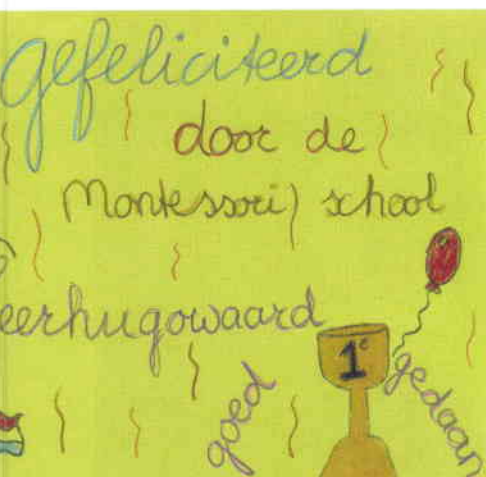 gefeliciteerd
door de
Montessori school
eerhugowaard
1e
goed
gedaan